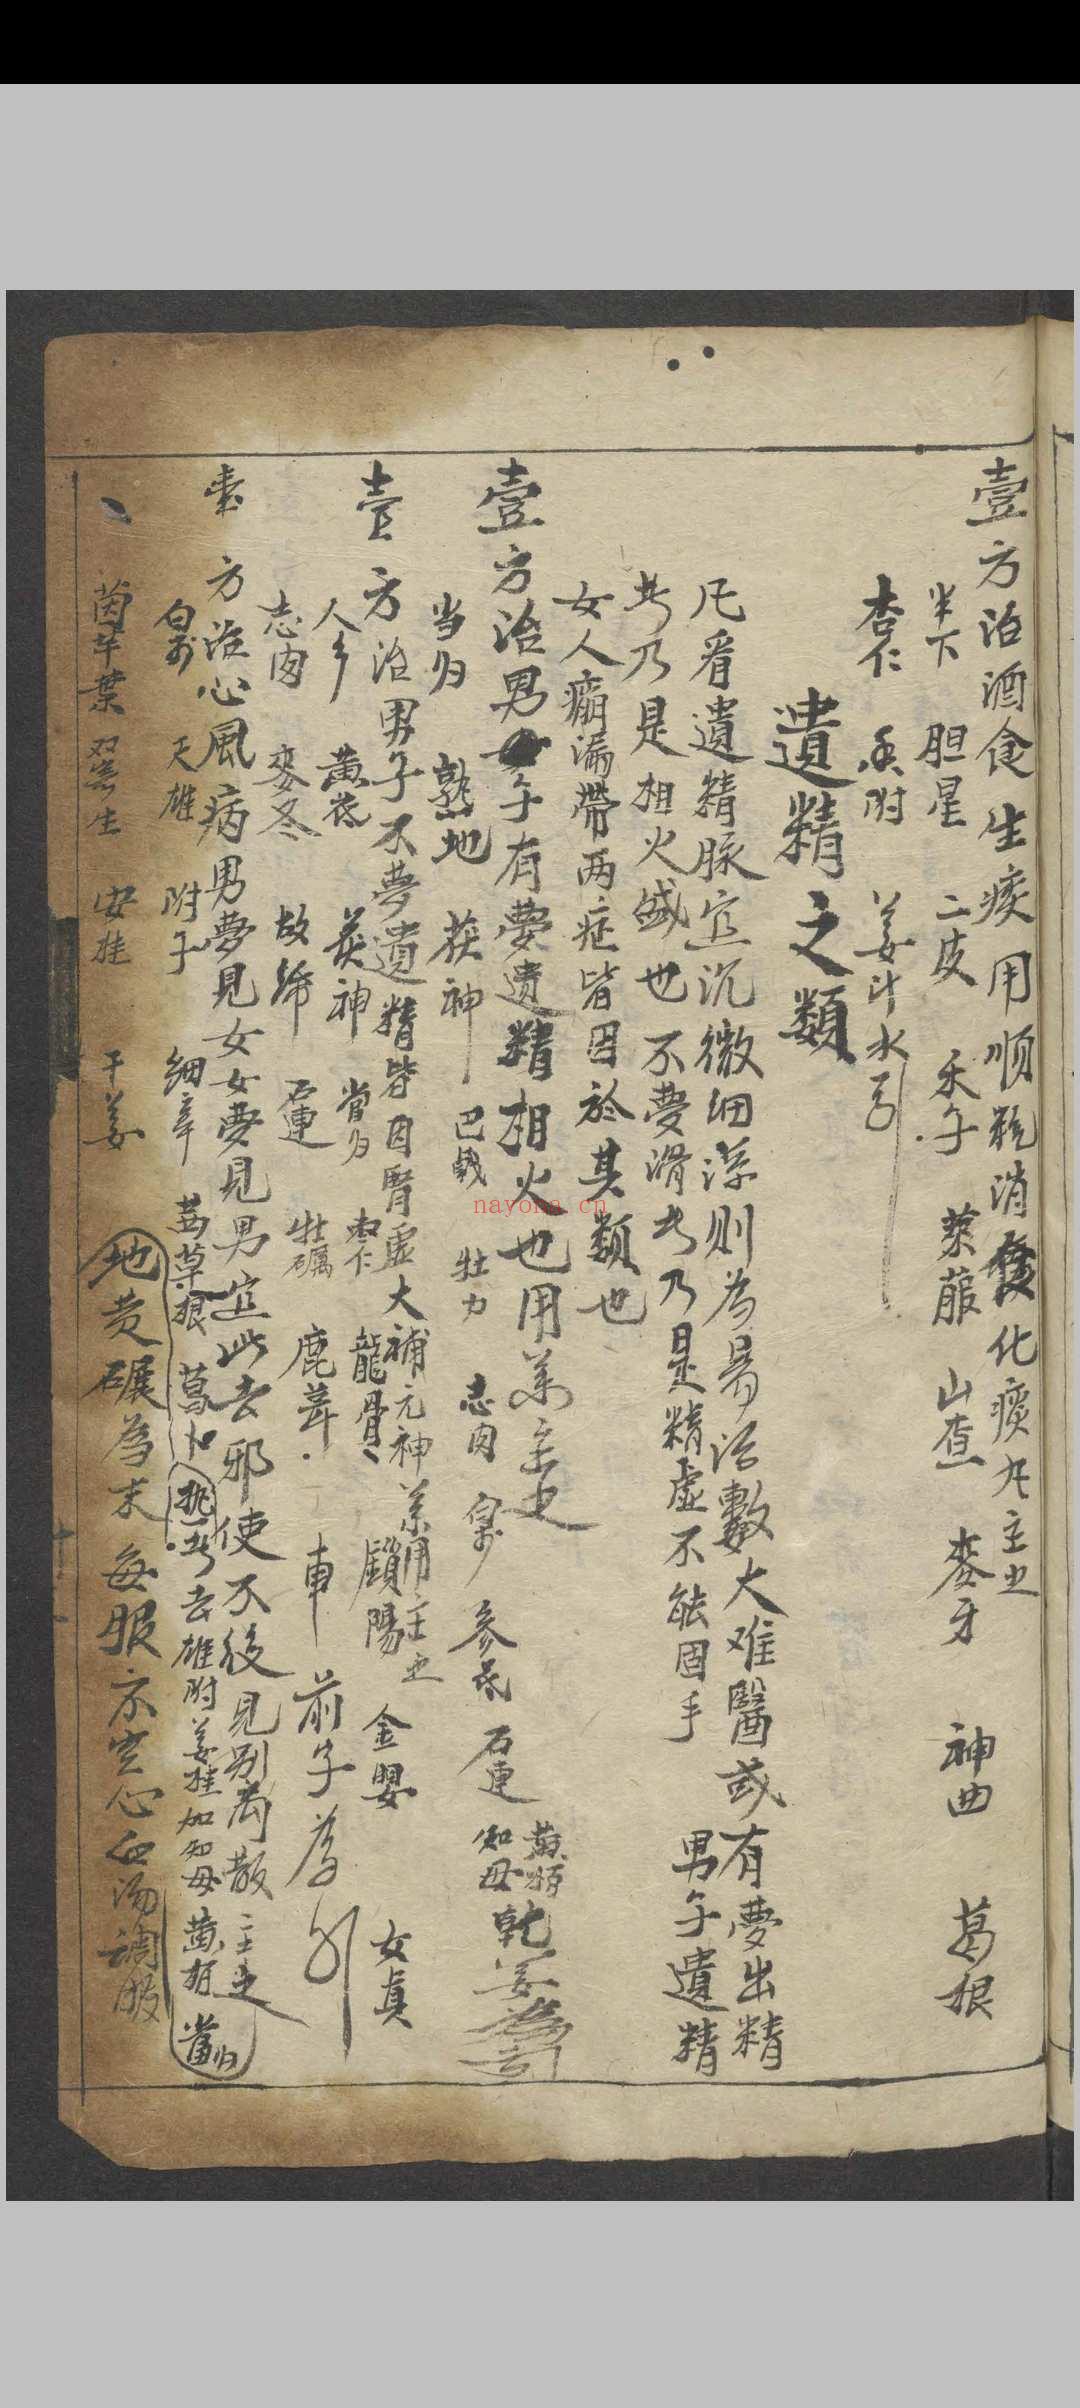 壹方治酒食生痰用顺氣消食化痰丸主之
半下 胆星 二皮 禾子 萊菔 山查 麥牙 神曲 葛根
杏仁 香附 姜汁水引
遺精之類
凡看遺精脉宜沉微細澀則為易治數大难醫或有夢出精
此乃是相火盛也不夢滑此乃是精虛不能固手男子遺精
女人崩漏帶两症皆因於其類也
壹方治男子有夢遗精相火也用葯主之
当归 熟地 茯神 巴戟 牡力 志肉 白芍 参芪 石連 黄柏 知母 乾姜為引
壹方治男子不夢遺精皆因腎虛大補元神葯用主之
人参 黄芪 茯神 當归 枣仁 龍骨 鎖陽 金嬰 女貞
志肉 麥冬 故紙 石連 牡礪 鹿茸 車前子為引
壹方治心風病男夢見女女夢見男宜此去邪使不後見别离散主之
白术 天雄 附子 細辛 茜草根 菖卜 热者去雄附姜桂加知母黄柏當归
茵芋葉 安桂 干姜 地黄碾為末每服 空心 湯調服
nayona.cn